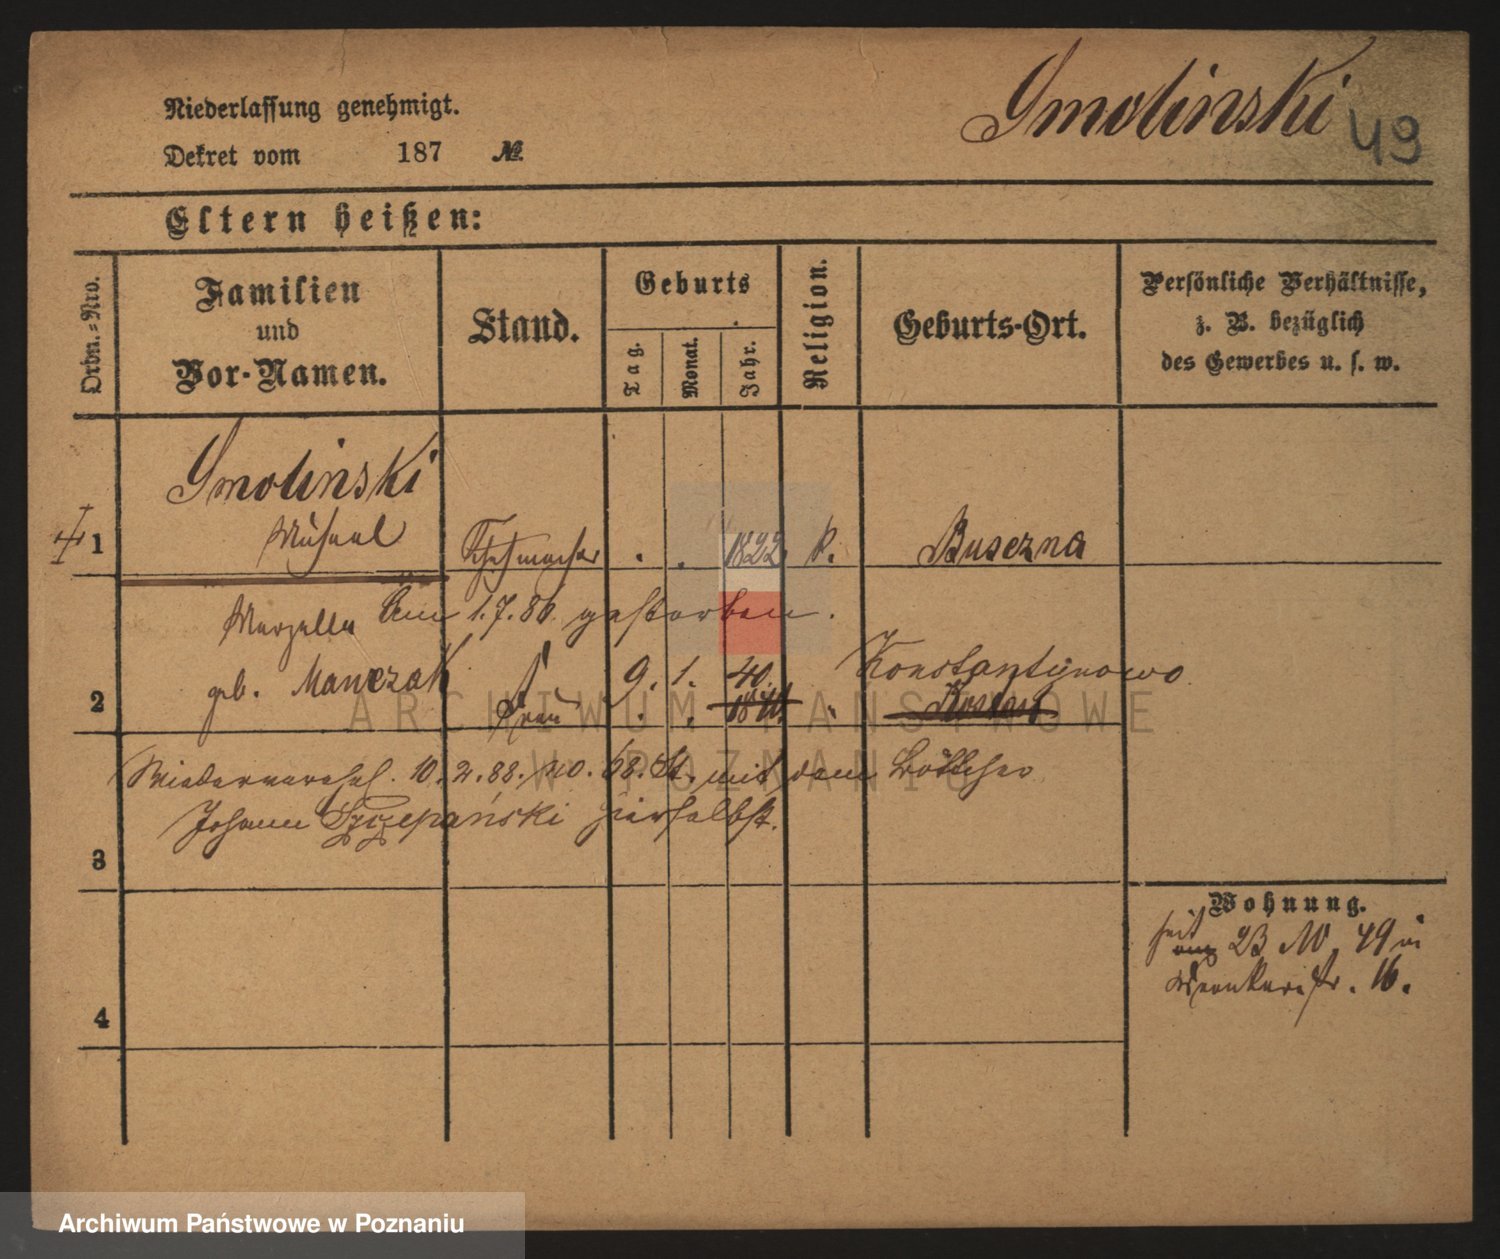 Smolinski 49
Niederlassung genehmigt.
Dekret vom 187 №
Eltern heißen:
Ordn.=Nro.
Familien
und
Vor-Namen.
Stand.
Geburts
Tag.
Monat.
Jahr.
Religion.
Geburts-Ort.
Persönliche Verhältnisse,
z. B. bezüglich
des Gewerbes u. s. w.
Smolinski
1 Michael . . 1822 k. Busezna
Am 1.7.86. gestorben.
Marzella
2 geb. Manczak Frau 9. 1. 40. Konstantynowo
Wiederverehel. 10.2.88. No. 68. St. mit dem Böttcher
Johann Szczepański hierselbst.
3
Wohnung.
seit 23 49
16.
4
ARCHIWUM PAŃSTWOWE
W POZNANIU
Archiwum Państwowe w Poznaniu